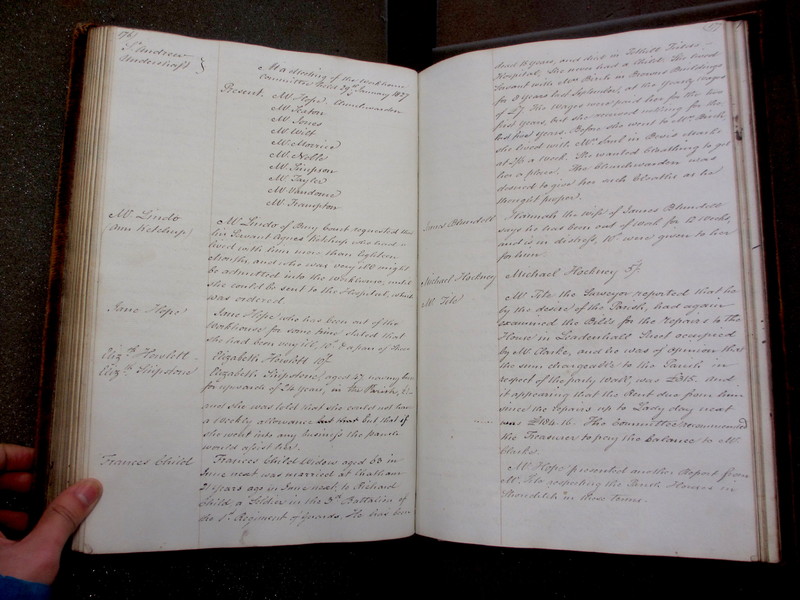 176
St. Andrew
Undershaft
At a Meeting of the Workhouse
Committee held 29th January 1827
Present Mr. Hope, Churchwarden
Mr. Heaton
Mr. Jones
Mr. Wilt
Mr. Morrice
Mr. Noble
Mr. Simpson
Mr. Tayler
Mr. Vandome
Mr. Frampton
Mr. Lindo
Ann Ketchup
Mr. Lindo of Bury Court requested that
his Servant Agnes Ketchup who had
lived with him more than Eighteen
Months, and who was very ill might
be admitted into the Workhouse, until
she could be sent to the Hospital, which
was ordered.
Jane Hope
Jane Hope who has been out of the
Workhouse for some time stated that
she had been very ill, 10/- & a pair of Shoes
Elizth. Howlett
Elizabeth Howlett 10/-
Elizth. Shipstone
Elizabeth Shipstone aged 47 having been
for upwards of 24 years, in the Parish,
and she was told that she could not have
a Weekly allowance but that if
she went into any business the parish
would assist her.
Frances Child
Frances Child Widow aged 63 in
June next was married at Chatham
21 Years ago in June next, to Richard
Child a Soldier in the 3rd Battalion of
the 1st Regiment of Guards, He has been
177
dead 11 years, and died in Tothill Fields
Hospital, She never had a Child. She lived
Servant with Mr. Birch in Browns Buildings
for 3 Years last September, at the yearly wages
of £7 The Wages were paid her for the two
first years, but she received nothing for the
last two Years. Before she went to Mr. Birch,
she lived with Mr. in Bevis Marks
at 2/6 a Week. She wanted Cloathing to get
her a place. The Churchwarden was
desired to give her such Cloaths as he
thought proper.
James Blundell
Hannah the wife of James Blundell
says he has been out of Work for 12 Weeks,
and is in distress, 10/- were given to her
for him.
Michael Hockney
Michael Hockney 5/-
Mr. Tite
Mr. Tite the Surveyor reported that he
by the desire of the Parish, had again
examined the Bills for the repairs to the
House in Leadenhall Street occupied
by Mr. Clarke, and he was of opinion that
the sum chargeable to the Parish in
respect of the party Wall, was £315. And
it appearing that the Rent due from him
since the repairs up to Lady day next
was £184.16. The Committee recommended
the Treasurer to pay the balance to Mr.
Clarke.
Mr. Hope presented another Report from
Mr. Tite respecting the Parish Houses in
Shoreditch in these terms.